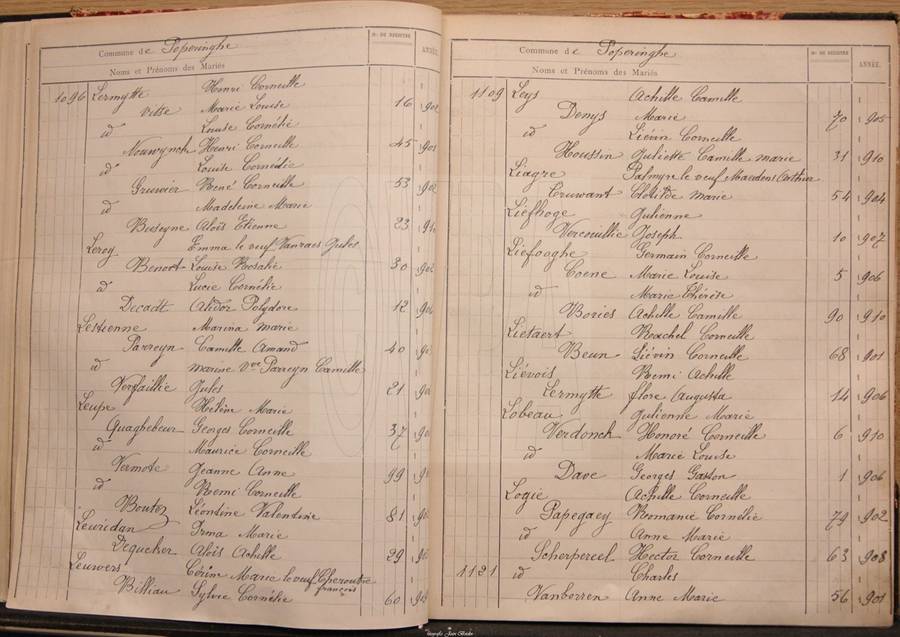 Commune de Poperinghe
Nos DE REGISTRE
ANNÉE.
Noms et Prénoms des Mariés
1096 Lermytte Henri Corneille
Vitse Marie Louise 16
id Louise Cornélie
Nouwynck Henri Corneille 45
id Louise Cornélie
Gruwier René Corneille 53
id Madeleine Marie
Buseyne Aloïs Etienne 23
Leroy Emma le veuf Vanraes Jules
Benoot Louise Rosalie 30
id Lucie Cornélie
Decadt Alidor Polydore 12
Lestienne Marina Marie
Parreyn Camille Amand 40
id marine Vve Pareyn Camille
Verfaillie Jules 21
Leupe Hélène Marie
Quaghebeur Georges Corneille 37
id Maurice Corneille
Vermote Jeanne Anne 99
id Remi Corneille
Bouton Léontine Valentine 81
Leuridan Irma Marie
Dequeker Aloïs Achille 29
Leuwers Marie le veuf françois
Billiau Sylvie Cornélie 60
Commune de Poperinghe
Nos DE REGISTRE
ANNÉE.
Noms et Prénoms des Mariés
1109 Leys Achille Camille
Denys Marie 70 905
id Liévin Corneille
Houssin Juliette Camille marie 31 910
Liagre Palmyre le veuf
Cruwant Clotilde marie 54 904
Liefhoge Julienne
Vercouillie Joseph 10 907
Liefooghe Germain Corneille
Coene Marie Louise 5 906
id Marie Thérèse
Bories Achille Camille 90 910
Lietaert Rachel Corneille
Beun Liévin Corneille 68 901
Liévois Remi Achille
Lermytte flore Augusta 14 906
Lobeau Julienne Marie
Verdonck Honoré Corneille 6 910
id Marie Louise
Dave Georges Gaston 1 906
Logie Achille Corneille
Papegaey Romanie Cornélie 79 902
id Anne Marie
Scherpereel Hector Corneille 63 908
1121 id Charles
Vanborren Anne Marie 56 901